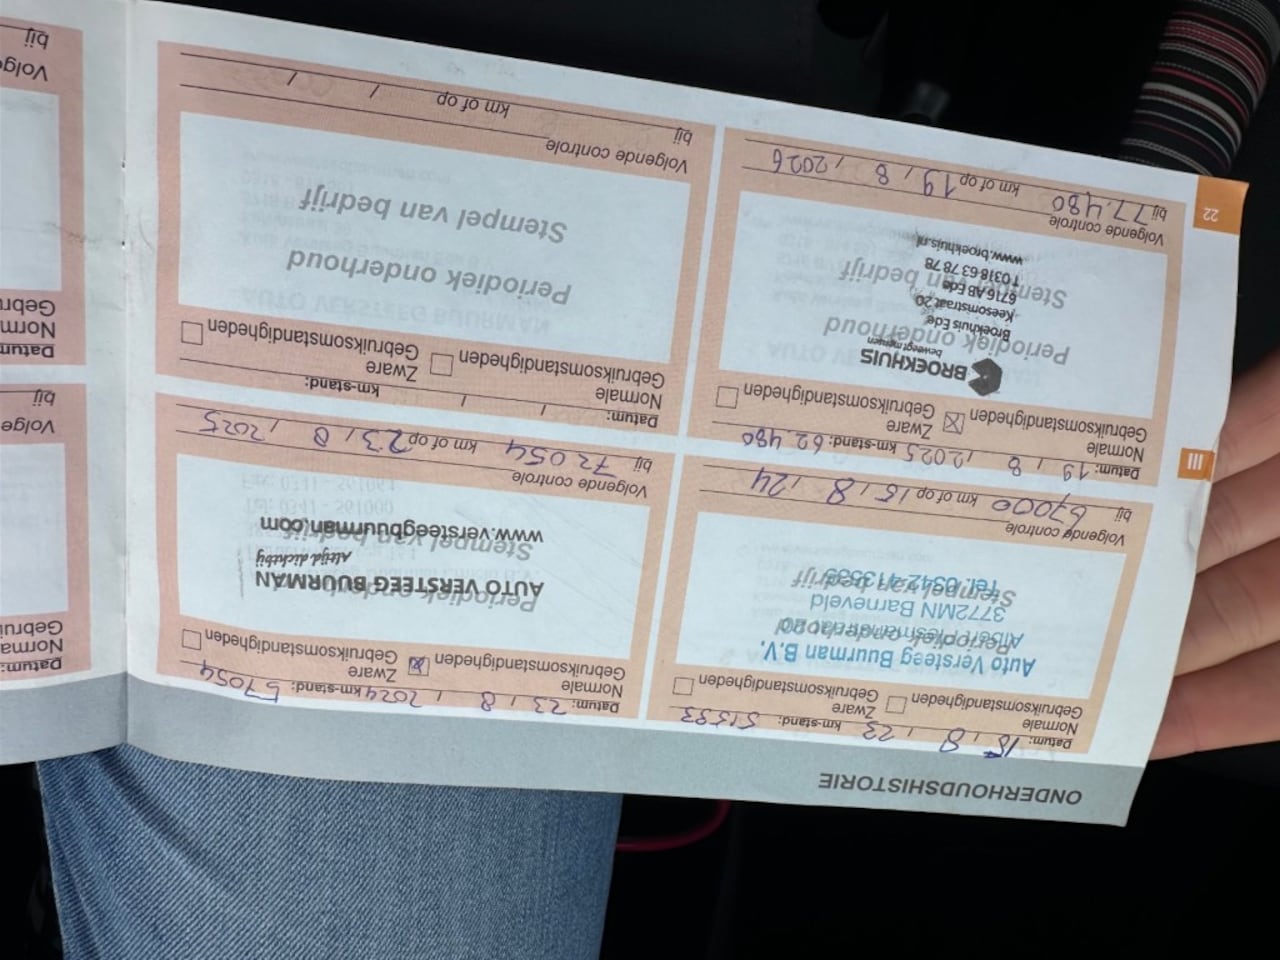 ONDERHOUDSHISTORIE
Datum: 15 / 8 / 23 km-stand: 51583
Normale Gebruiksomstandigheden
Zware Gebruiksomstandigheden
Periodiek onderhoud
Stempel van bedrijf
Auto Versteeg Buurman B.V.
3772MN Barneveld
Tel. 0342-413555
Volgende controle
bij 67000 km of op 15 / 8 / 24
Datum: 23 / 8 / 2024 km-stand: 57054
Normale Gebruiksomstandigheden
Zware Gebruiksomstandigheden
Periodiek onderhoud
Stempel van bedrijf
AUTO VERSTEEG BUURMAN
altijd dichtbij
www.versteegbuurman.com
Volgende controle
bij 72054 km of op 23 / 8 / 2025
III
Datum: 19 / 8 / 2025 km-stand: 62.480
Normale Gebruiksomstandigheden
Zware Gebruiksomstandigheden
BROEKHUIS
beweegt mensen
Periodiek onderhoud
Stempel van bedrijf
Broekhuis Ede
Keesomstraat 20
6716 AB Ede
T 0318 63 78 78
www.broekhuis.nl
Volgende controle
bij 77.480 km of op 19 / 8 / 2026
Datum: / / km-stand:
Normale Gebruiksomstandigheden
Zware Gebruiksomstandigheden
Periodiek onderhoud
Stempel van bedrijf
Volgende controle
bij km of op / /
22
Datum:
bij
bij
Datum: